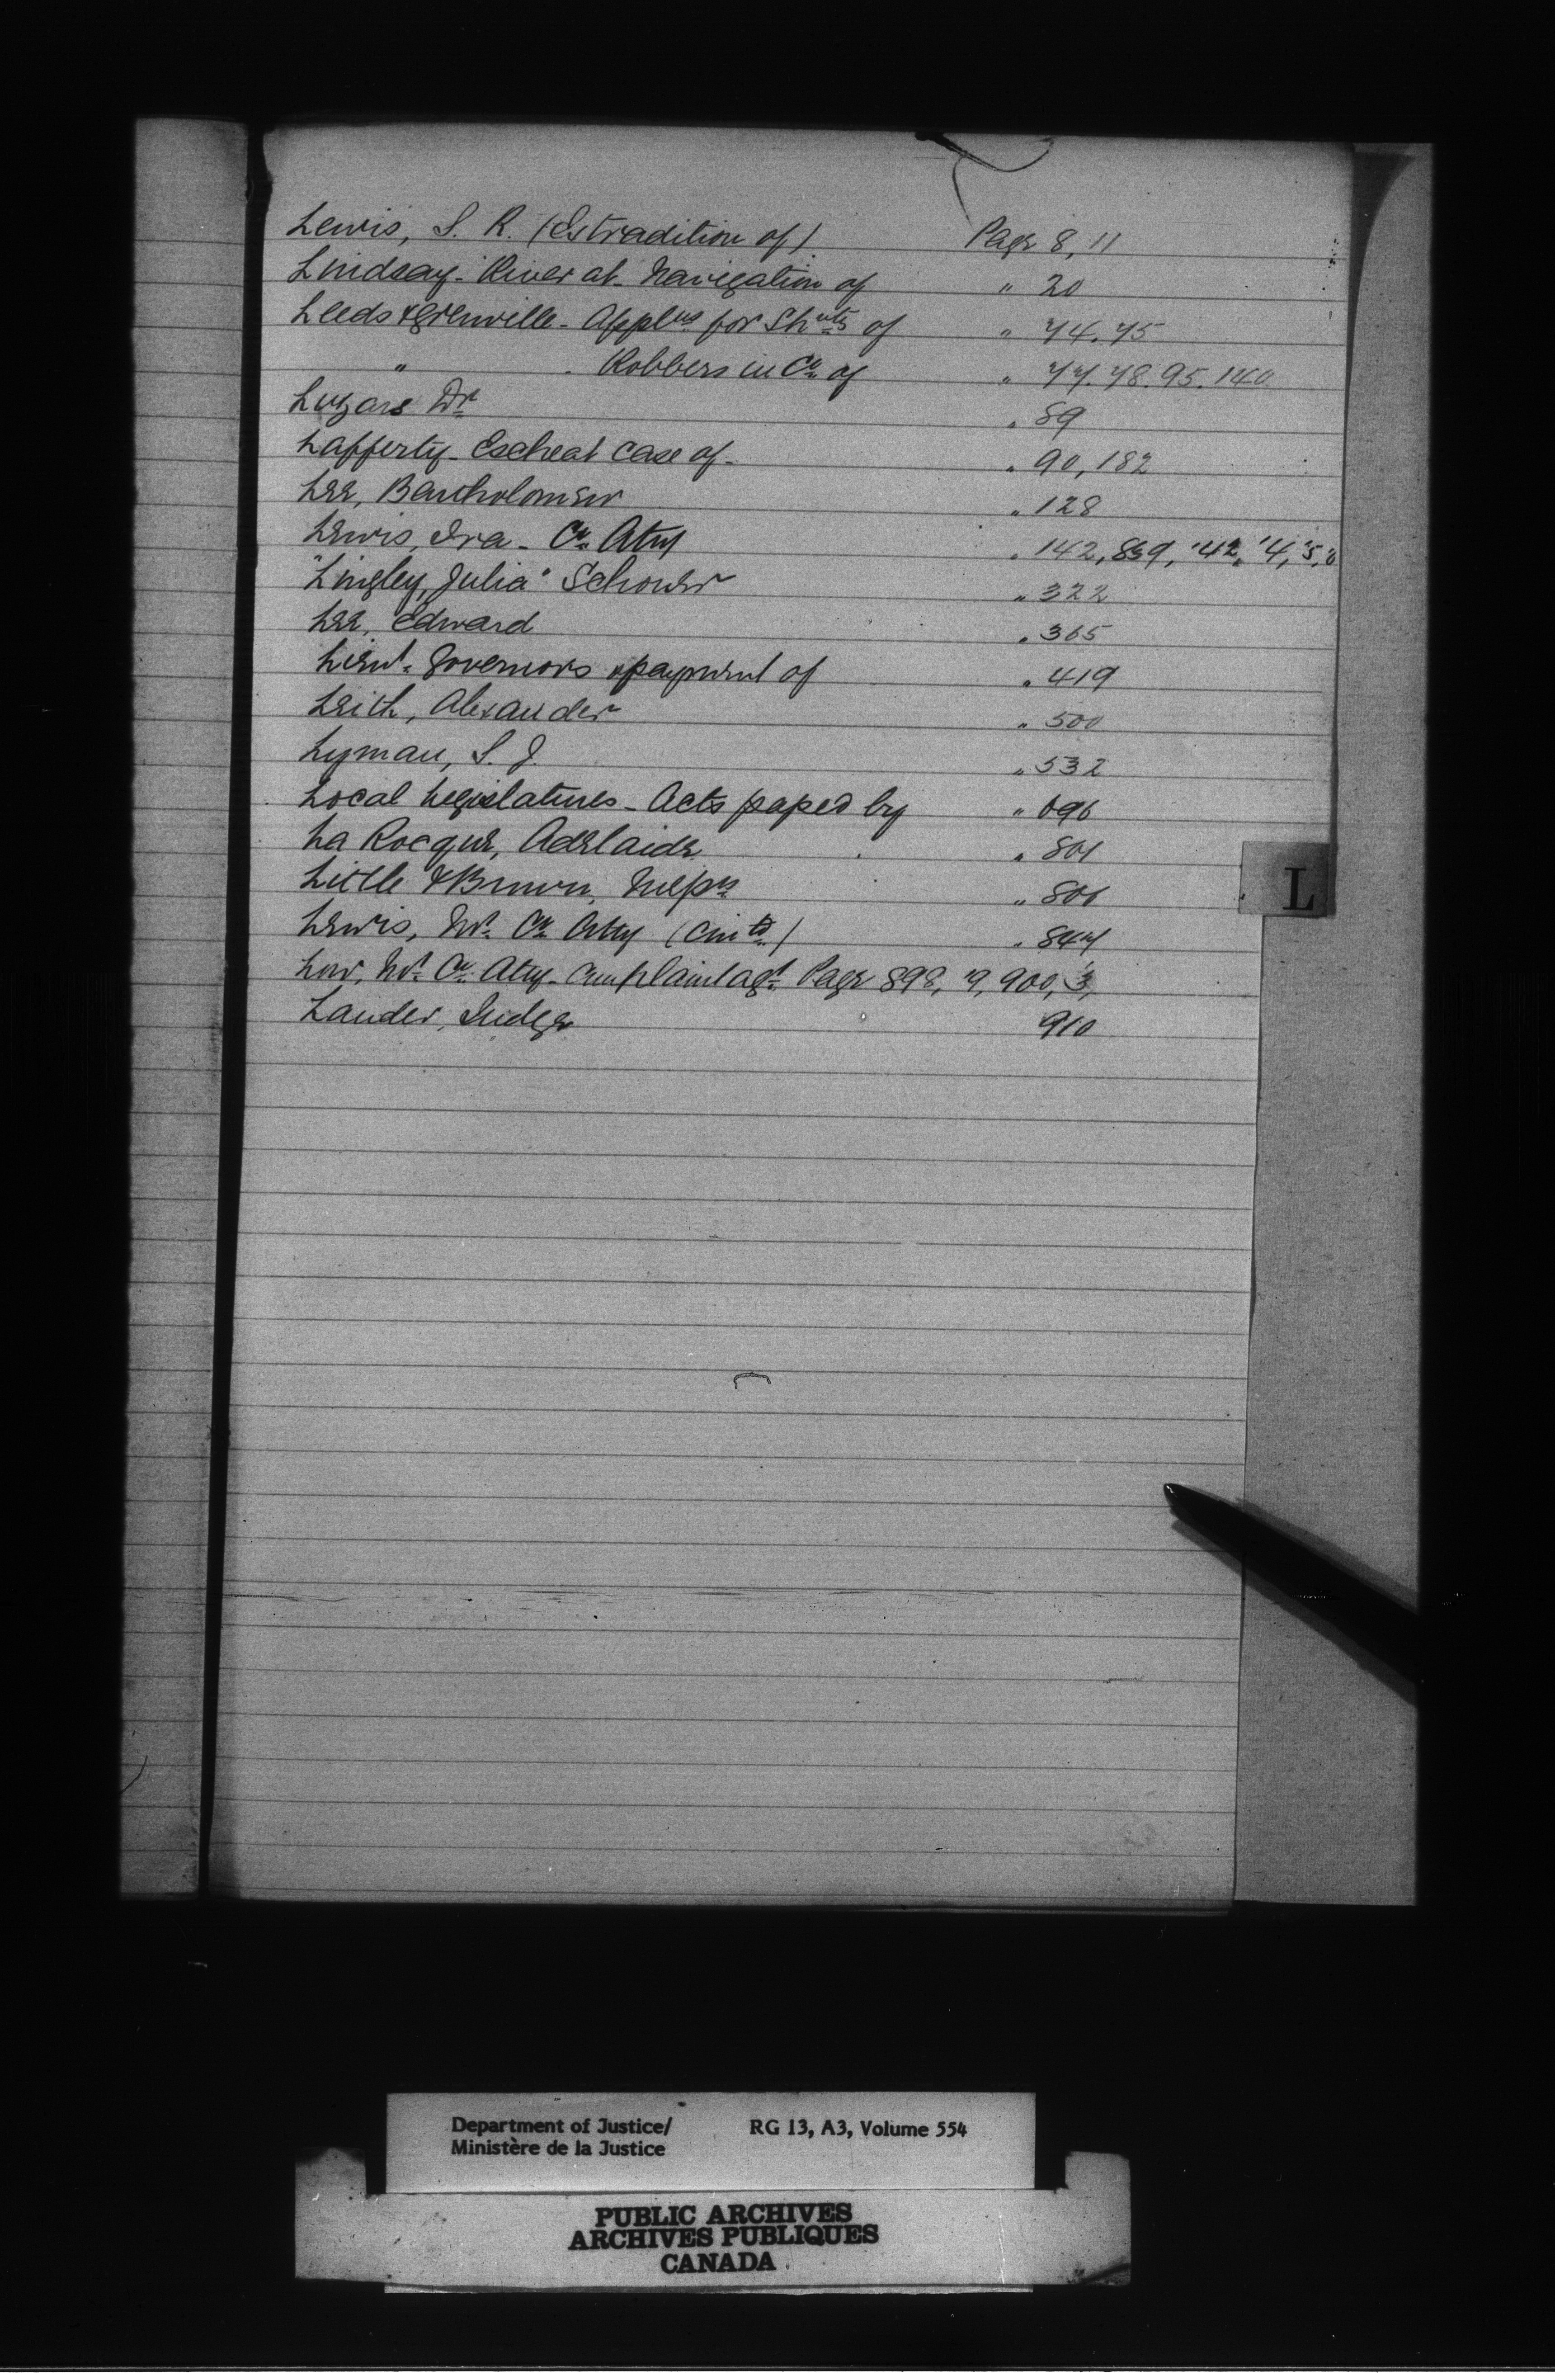 Lewis, S. R. (Extradition of) Page 8, 11
Lindsay - River at - Navigation of " 20
Leeds & Grenville - Applns for Shvlts of " 74. 75
" . Robbers in Co. of " 77. 78. 95. 140
Lugars Dr. " 89
Lafferty - Escheat case of - " 90, 182
Lee, Bartholomew " 128
Lewis, Ira - Co. Atty " 142, 839, '42, '4, '5,
"Lingley, Julia" Schooner " 322
Lee, Edward " 365
Lieut. Governors payment of " 419
Leith, Alexander " 500
Lyman, S. J. " 532
Local Legislatures - Acts passed by " 696
La Rocque, Adelaide " 801
Little & Brown, Messrs " 806
Lewis, Mr. Co. Atty (contd.) " 847
Low, Mr. Co. Atty - Complaint agt. Page 898, '9, 900, '3,
Lauder, Judge 910
L
Department of Justice/ RG 13, A3, Volume 554
Ministère de la Justice
PUBLIC ARCHIVES
ARCHIVES PUBLIQUES
CANADA